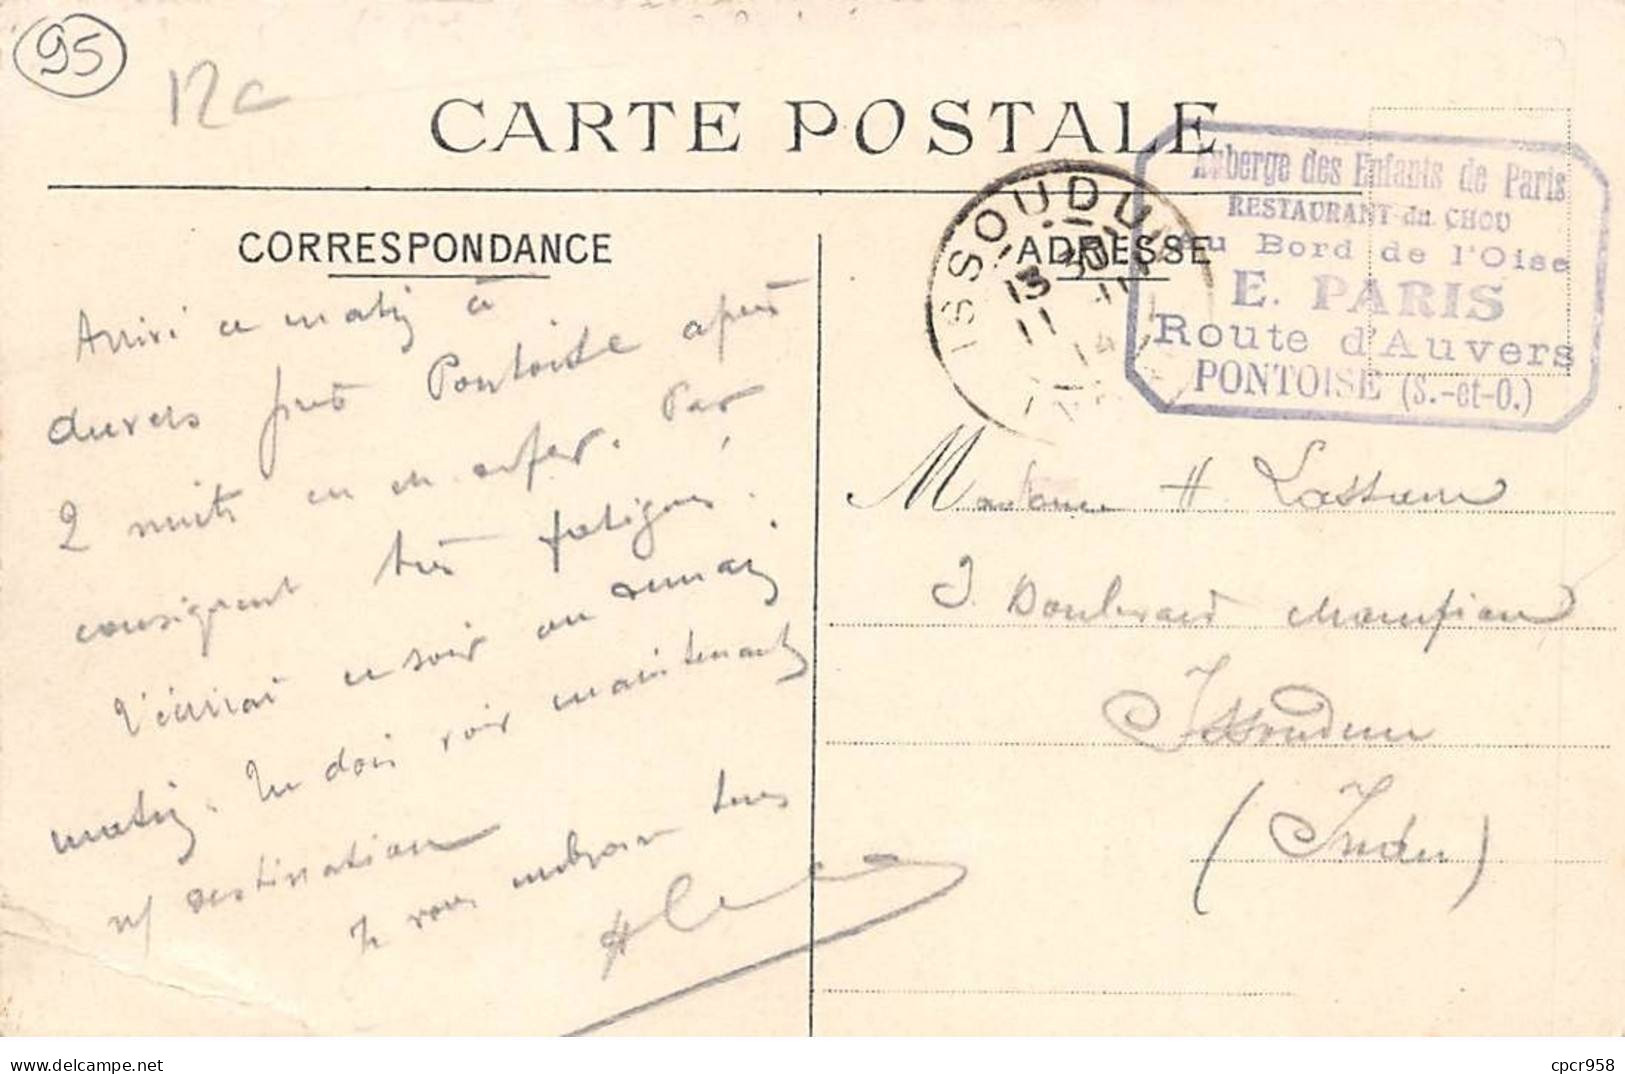 95
12c
CARTE POSTALE
Auberge des Enfants de Paris
RESTAURANT du CHOU
Au Bord de l'Oise
E. PARIS
Route d'Auvers
PONTOISE (S.-et-O.)
ISSOUDUN
13 30
11 11
14
CORRESPONDANCE
ADRESSE
Arrivé ce matin à
Auvers près Pontoise après
2 nuits en ch. de fer. Par
conséquent très fatigués.
T'écrirai ce soir ou demain
matin. Tu dois voir maintenant
n/ destination
Je vous embrasse tous
Madame H.
Boulevard Champion
Issoudun
(Indre)
Image sous droit d'auteur
cpcr958